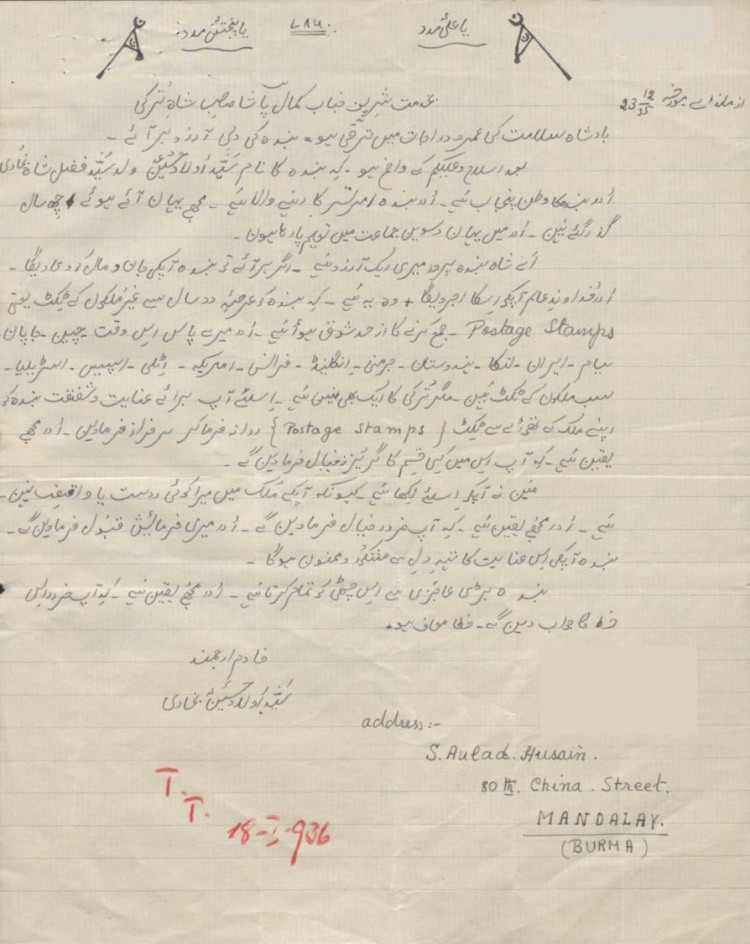 یا علیؑ مدد ۷۸۶ یا پنجتنؑ مدد
از مانڈلے مورخہ 23 12/35
بخدمت شریف جناب کمال پاشا صاحب شاہ تُرکی
بادشاہ سلامت کی عمر و درجات میں ترقی ہو۔ بندہ کی دلی آرزو بر آئے۔
بعد اسلام وعلیکم کے واضح ہو۔ کہ بندہ کا نام سیّد اولاد حسین ولد سیّد فضل شاہ بخاری
اور بندہ کا وطن پنجاب ہے۔ اور بندہ امرتسر کا رہنے والا ہے۔ مجھے یہاں آئے ہوئے چھ سال
گذر گئے ہیں۔ اور میں یہاں دسویں جماعت میں تعلیم پا رہا ہوں۔
اے شاہ بندہ پرور میری ایک آرزو ہے۔ اگر بر آئے تو بندہ آپکی جان و مال کو دعا دیگا۔
اور خداوند عالم آپکو اسکا اجر دیگا + وہ یہ ہے۔ کہ بندہ کو عرصہ دو سال سے غیر ملکوں کے ٹکٹ یعنی
Postage Stamps۔ جمع کرنے کا از حد شوق ہوا ہے۔ اور میرے پاس اس وقت چین۔ جاپان
سیام۔ ایران۔ لنکا۔ ہندوستان۔ جرمنی۔ انگلینڈ۔ فرانس۔ امریکہ۔ اٹلی۔ اسپین۔ اسٹریلیا۔
سب ملکوں کے ٹکٹ ہیں۔ مگر تُرکی کا ایک بھی نہیں ہے۔ اسلئے آپ برائے عنایت و شفقت بندہ کو
اپنے ملک کے تھوڑے سے ٹکٹ (Postage stamps) روانہ فرما کر سرفراز فرماویں۔ اور مجھے
یقین ہے۔ کہ آپ اس میں کسی قسم کا گریز نہ خیال فرماویں گے۔
میں نے آپکو اسلئے لکھا ہے۔ کیونکہ آپکے مُلک میں میرا کوئی دوست یا واقف نہیں۔
ہے۔ اور مجھے یقین ہے۔ کہ آپ ضرور خیال فرماویں گے۔ اور میری فرمائش قبول فرماویں گے۔
بندہ آپکی اس عنایت کا تہہِ دل سے مشکور و ممنون ہوگا۔
بندہ بڑی عاجزی سے اس چٹھی کو تمام کرتا ہے۔ اور مجھے یقین ہے۔ کہ آپ ضرور اس
خط کا جواب دیں گے۔ خطا معاف ہو۔
خادم
سیّد اولاد حسین بخاری
address:-
S. Aulad. Husain.
80 th. China. Street.
MANDALAY.
(BURMA)
T.
T.
18-I-936